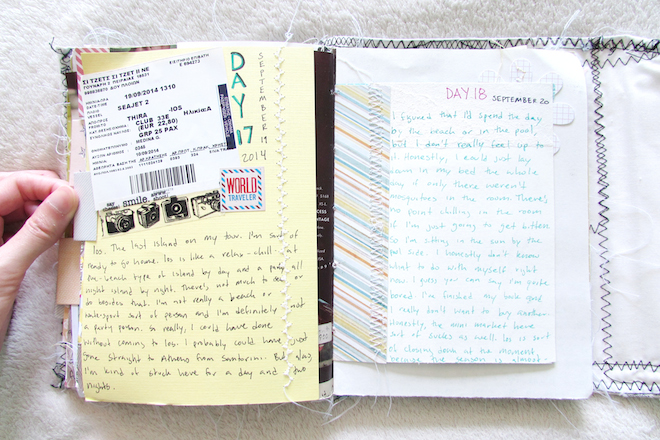 ΣΙ ΤΖΕΤΣ ΣΙ ΤΖΕΤ
19/09/2014 1310
SEAJET 2
THIRA -IOS
CLUB 33E
(EUR 22,80)
GRP 25 PAX
MEDINA G
ΕΙΣΙΤΗΡΙΟ ΕΠΙΒΑΤΗ
E 694273
DAY 17
SEPTEMBER 19
2014
say cheese
smile.
awww
shoot!
WORLD
TRAVELER
Ios. The last island on my tour. I'm sort of
ready to go home. Ios is like a relax-chill-at
the-beach type of island by day and a party all
night island by night. There's not much to see or
do besides that. I'm not really a beach or
watersport sort of person and I'm definitely not
a party person. So really, I could have done
without coming to Ios. I probably could have just
gone straight to Athens from Santorini. But alas
I'm kind of stuck here for a day and two
nights.
DAY 18 SEPTEMBER 20
I figured that I'd spend the day
by the beach or in the pool,
but I don't really feel up to
it. Honestly, I could just lay
down in my bed the whole
day if only there weren't
mosquitoes in the room. There's
no point chilling in the room
if I'm just going to get bitten
so I'm sitting in the sun by the
pool side. I honestly don't know
what to do with myself right
now. I guess you can say I'm quite
bored. I've finished my book and
I really don't want to buy another.
Honestly, the mini market here
sort of sucks as well. Ios is sort
of closing down at the moment
because the season is almost